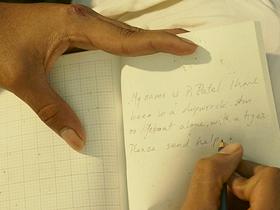 My name is P. Patel I have
been in a shipwreck. Am
on lifeboat alone, with a tiger.
Please send help.